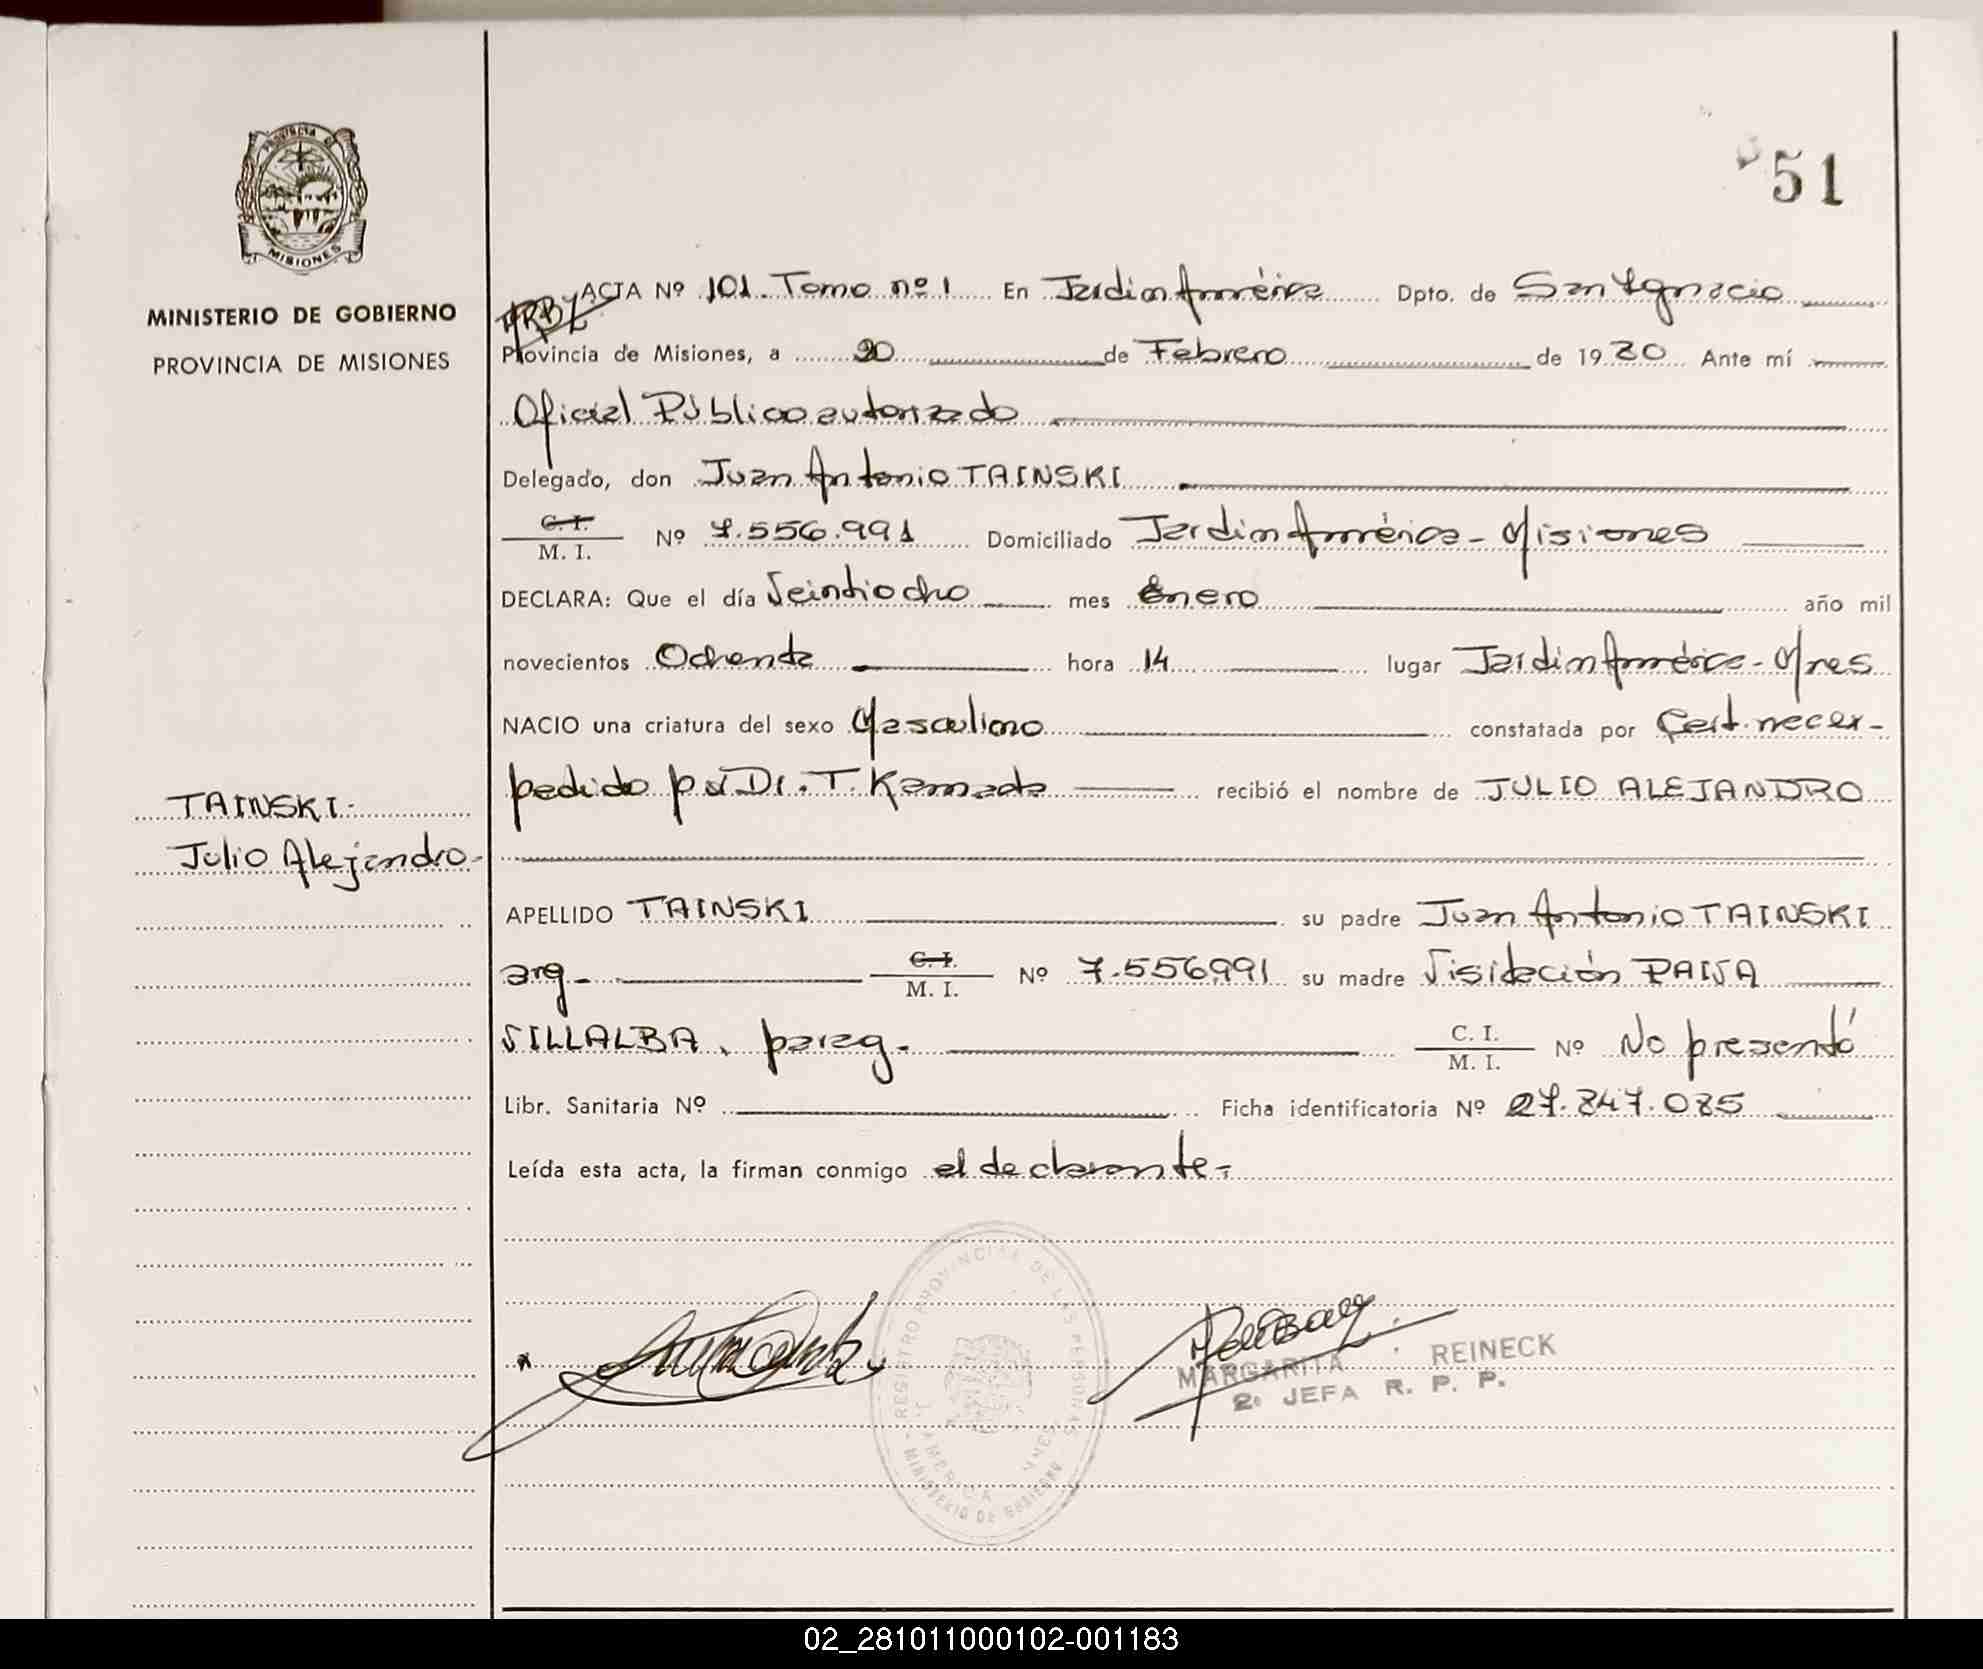 51
PROVINCIA DE
MISIONES
MINISTERIO DE GOBIERNO
PROVINCIA DE MISIONES
ACTA Nº 101. Tomo nº 1 En Jardin América Dpto. de San Ignacio
Provincia de Misiones, a 20 de Febrero de 1980 Ante mí
Oficial Público autorizado
Delegado, don Juan Antonio TAINSKI
C. I.
M. I. Nº 7.556.991 Domiciliado Jardin América - Misiones
DECLARA: Que el día Veintiocho mes Enero año mil
novecientos Ochenta hora 14 lugar Jardin América - Mnes
NACIO una criatura del sexo Masculino constatada por Cert. nac ex-
pedido por Dr. T. Kamada recibió el nombre de JULIO ALEJANDRO
TAINSKI
Julio Alejandro-
APELLIDO TAINSKI su padre Juan Antonio TAINSKI
arg- C. I.
M. I. Nº 7.556.991 su madre Visitación PAIVA
VILLALBA, parag- C. I.
M. I. Nº No presentó
Libr. Sanitaria Nº Ficha identificatoria Nº 27.847.085
Leída esta acta, la firman conmigo el declarante-
REGISTRO PROVINCIAL DE LAS PERSONAS
MINISTERIO DE GOBIERNO
MARGARITA REINECK
2º JEFA R. P. P.
02_281011000102-001183